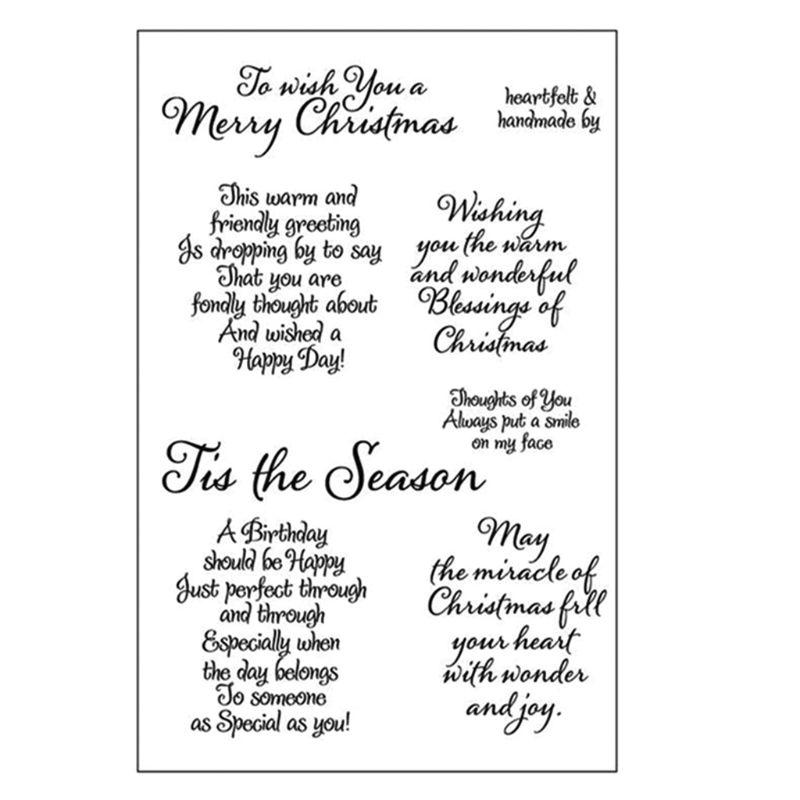 To wish You a
Merry Christmas
heartfelt &
handmade by
This warm and
friendly greeting
Is dropping by to say
That you are
fondly thought about
And wished a
Happy Day!
Wishing
you the warm
and wonderful
Blessings of
Christmas
Thoughts of You
Always put a smile
on my face
Tis the Season
A Birthday
should be Happy
Just perfect through
and through
Especially when
the day belongs
To someone
as Special as you!
May
the miracle of
Christmas fill
your heart
with wonder
and joy.